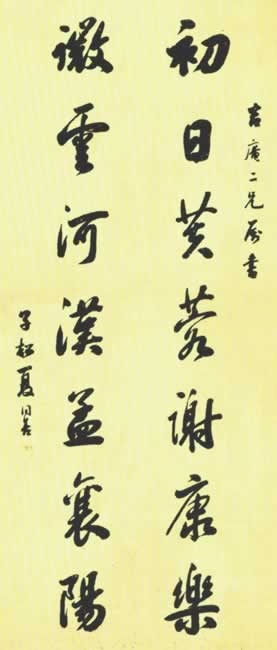 吉庵二兄属書
初日芙蓉謝康樂
微雲河漢孟襄陽
子松夏同善